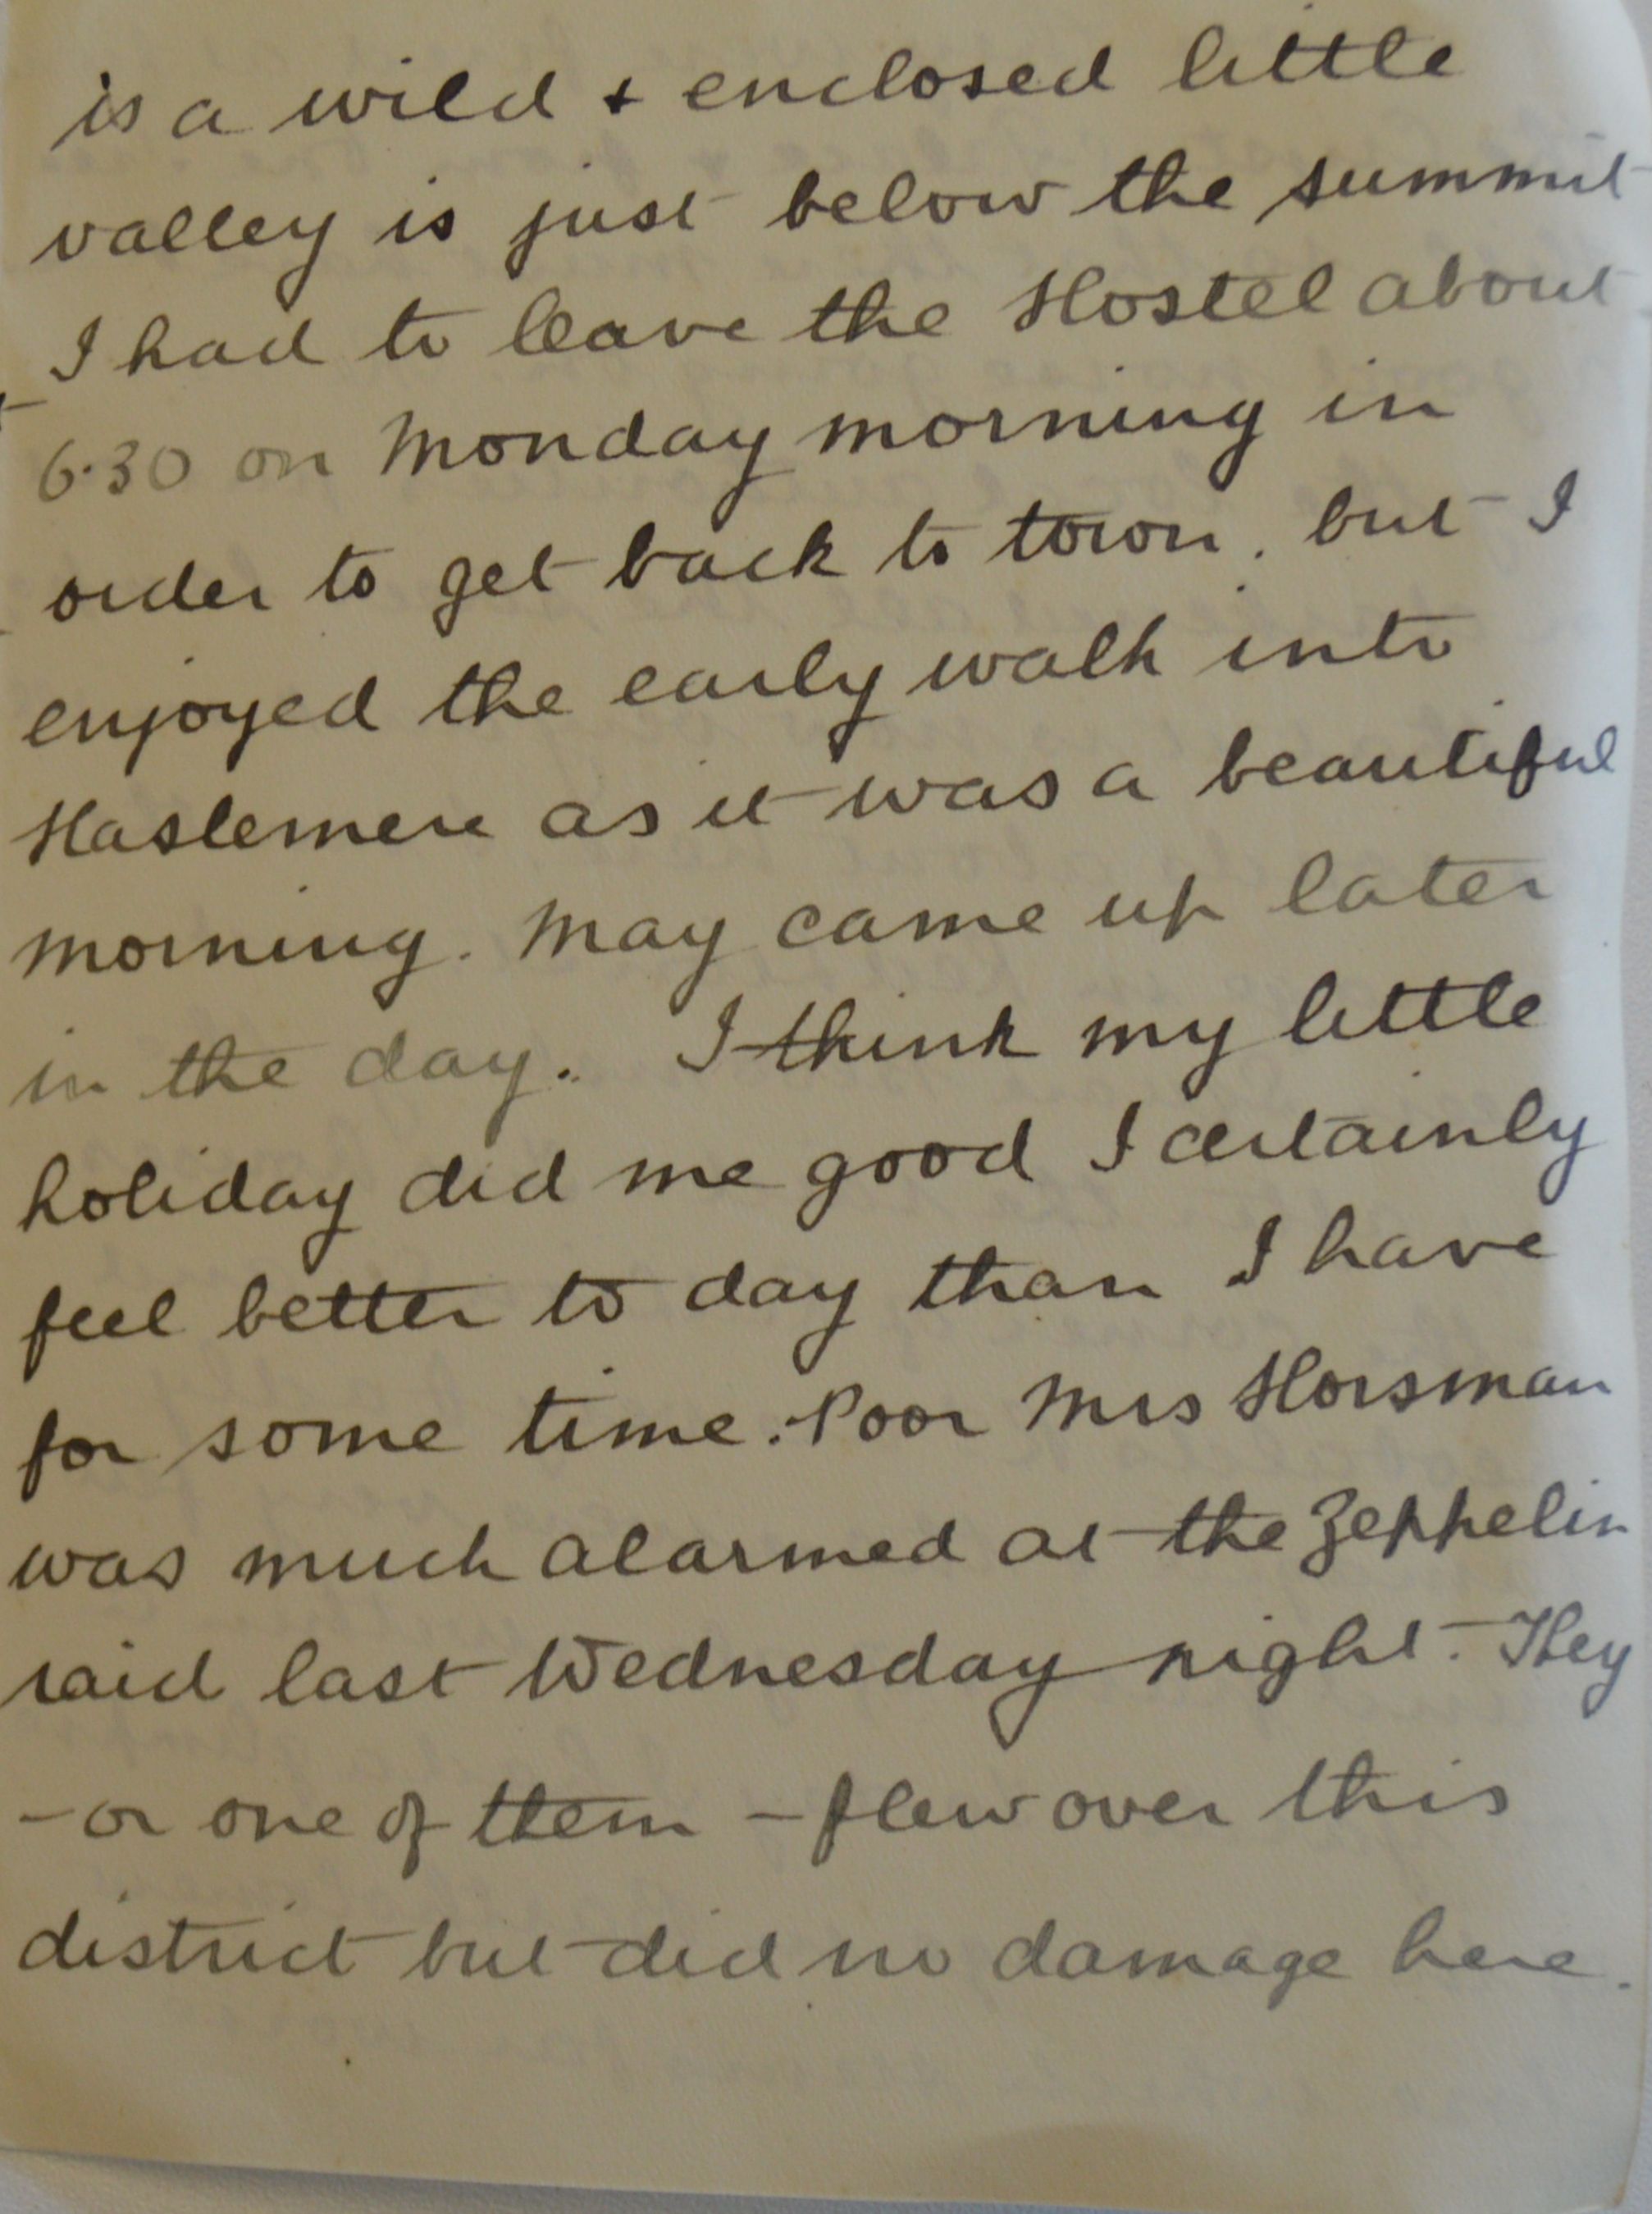 is a wild + enclosed little
valley is just below the summit
I had to leave the Hostel about
6.30 on Monday morning in
order to get back to town. but I
enjoyed the early walk into
Haslemere as it was a beautiful
morning. May came up later
in the day. I think my little
holiday did me good I certainly
feel better to day than I have
for some time. Poor Mrs Horsman
was much alarmed at the Zeppelin
raid last Wednesday night. They
- or one of them - flew over this
district but did no damage here.